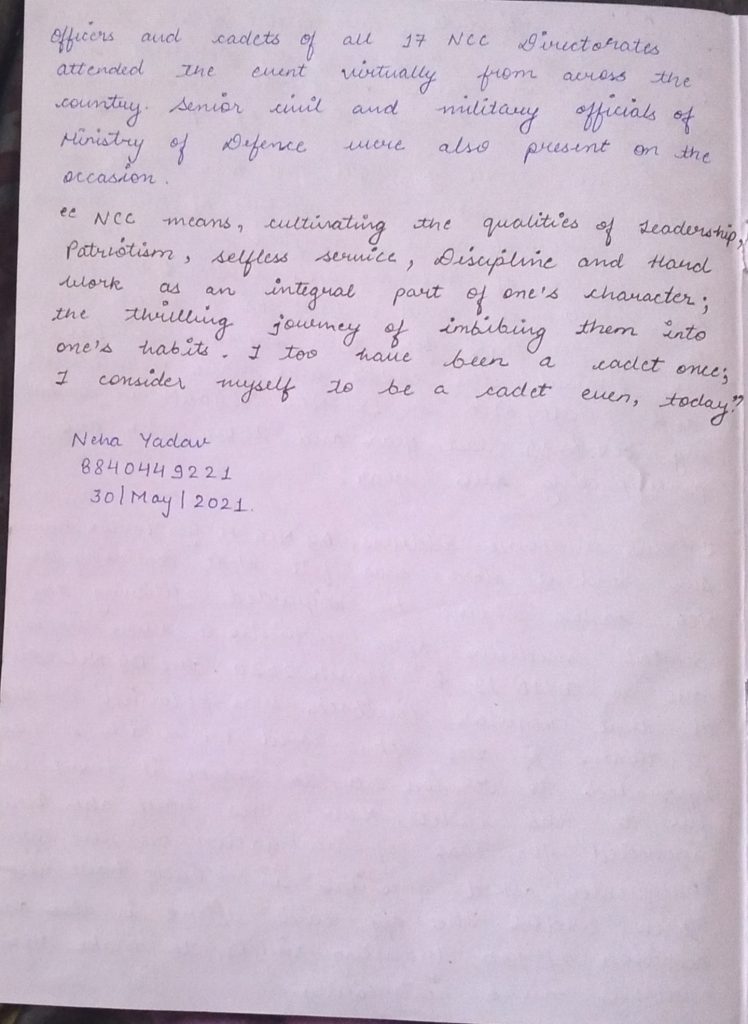 Officers and cadets of all 17 NCC Directorates
attended the event virtually from across the
country. Senior civil and military officials of
Ministry of Defence were also present on the
occasion.
“ NCC means, cultivating the qualities of Leadership,
Patriotism, selfless service, Discipline and Hard
work as an integral part of one's character;
the thrilling journey of imbibing them into
one's habits. I too have been a cadet once;
I consider myself to be a cadet even, today”
Neha Yadav
8840449221
30|May|2021.